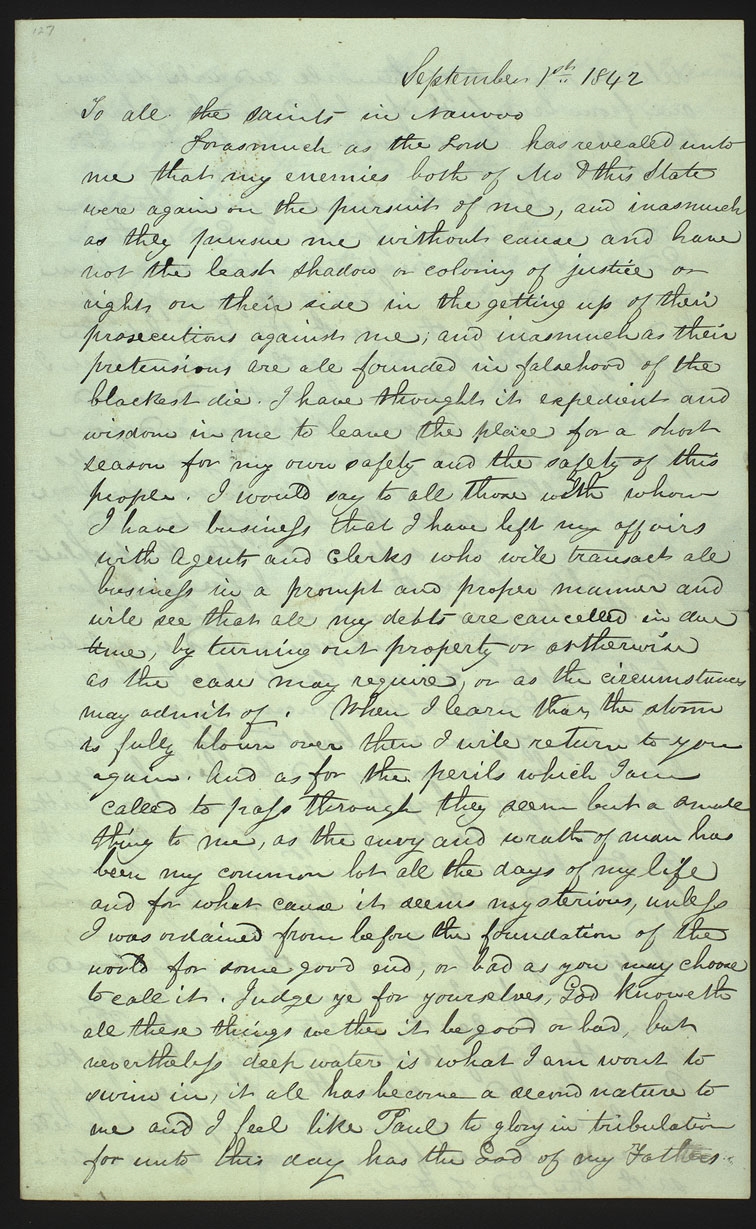 127
September 1st 1842
To all the saints in Nauvoo
Forasmuch as the Lord has revealed unto
me that my enemies both of Mo & this State
were again on the pursuit of me, and inasmuch
as they pursue me without cause and have
not the least shadow or coloring of justice or
right on their side in the getting up of their
prosecutions against me; and inasmuch as their
pretensions are all founded in falsehood of the
blackest die. I have thought it expedient and
wisdom in me to leave the place for a short
season for my own safety and the safety of this
people. I would say to all those with whom
I have business that I have left my affairs
with agents and clerks who will transact all
business in a prompt and proper manner and
will see that all my debts are cancelled in due
time, by turning out property or otherwise
as the case may require, or as the circumstances
may admit of. When I learn that the storm
is fully blown over then I will return to you
again. And as for the perils which I am
called to pass through they seem but a small
thing to me, as the envy and wrath of man has
been my common lot all the days of my life
and for what cause it seems mysterious, unless
I was ordained from before the foundation of the
world for some good end, or bad as you may choose
to call it. Judge ye for yourselves, God knoweth
all these things wether it be good or bad, but
nevertheless deep water is what I am wont to
swim in, it all has become a second nature to
me and I feel like Paul to glory in tribulation
for unto this day has the God of my Fathers